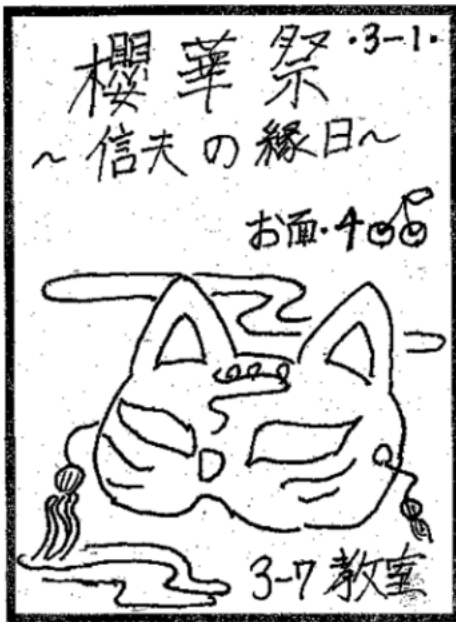 櫻華祭 ・3-1・
~信夫の縁日~
お面・400
3-7 教室